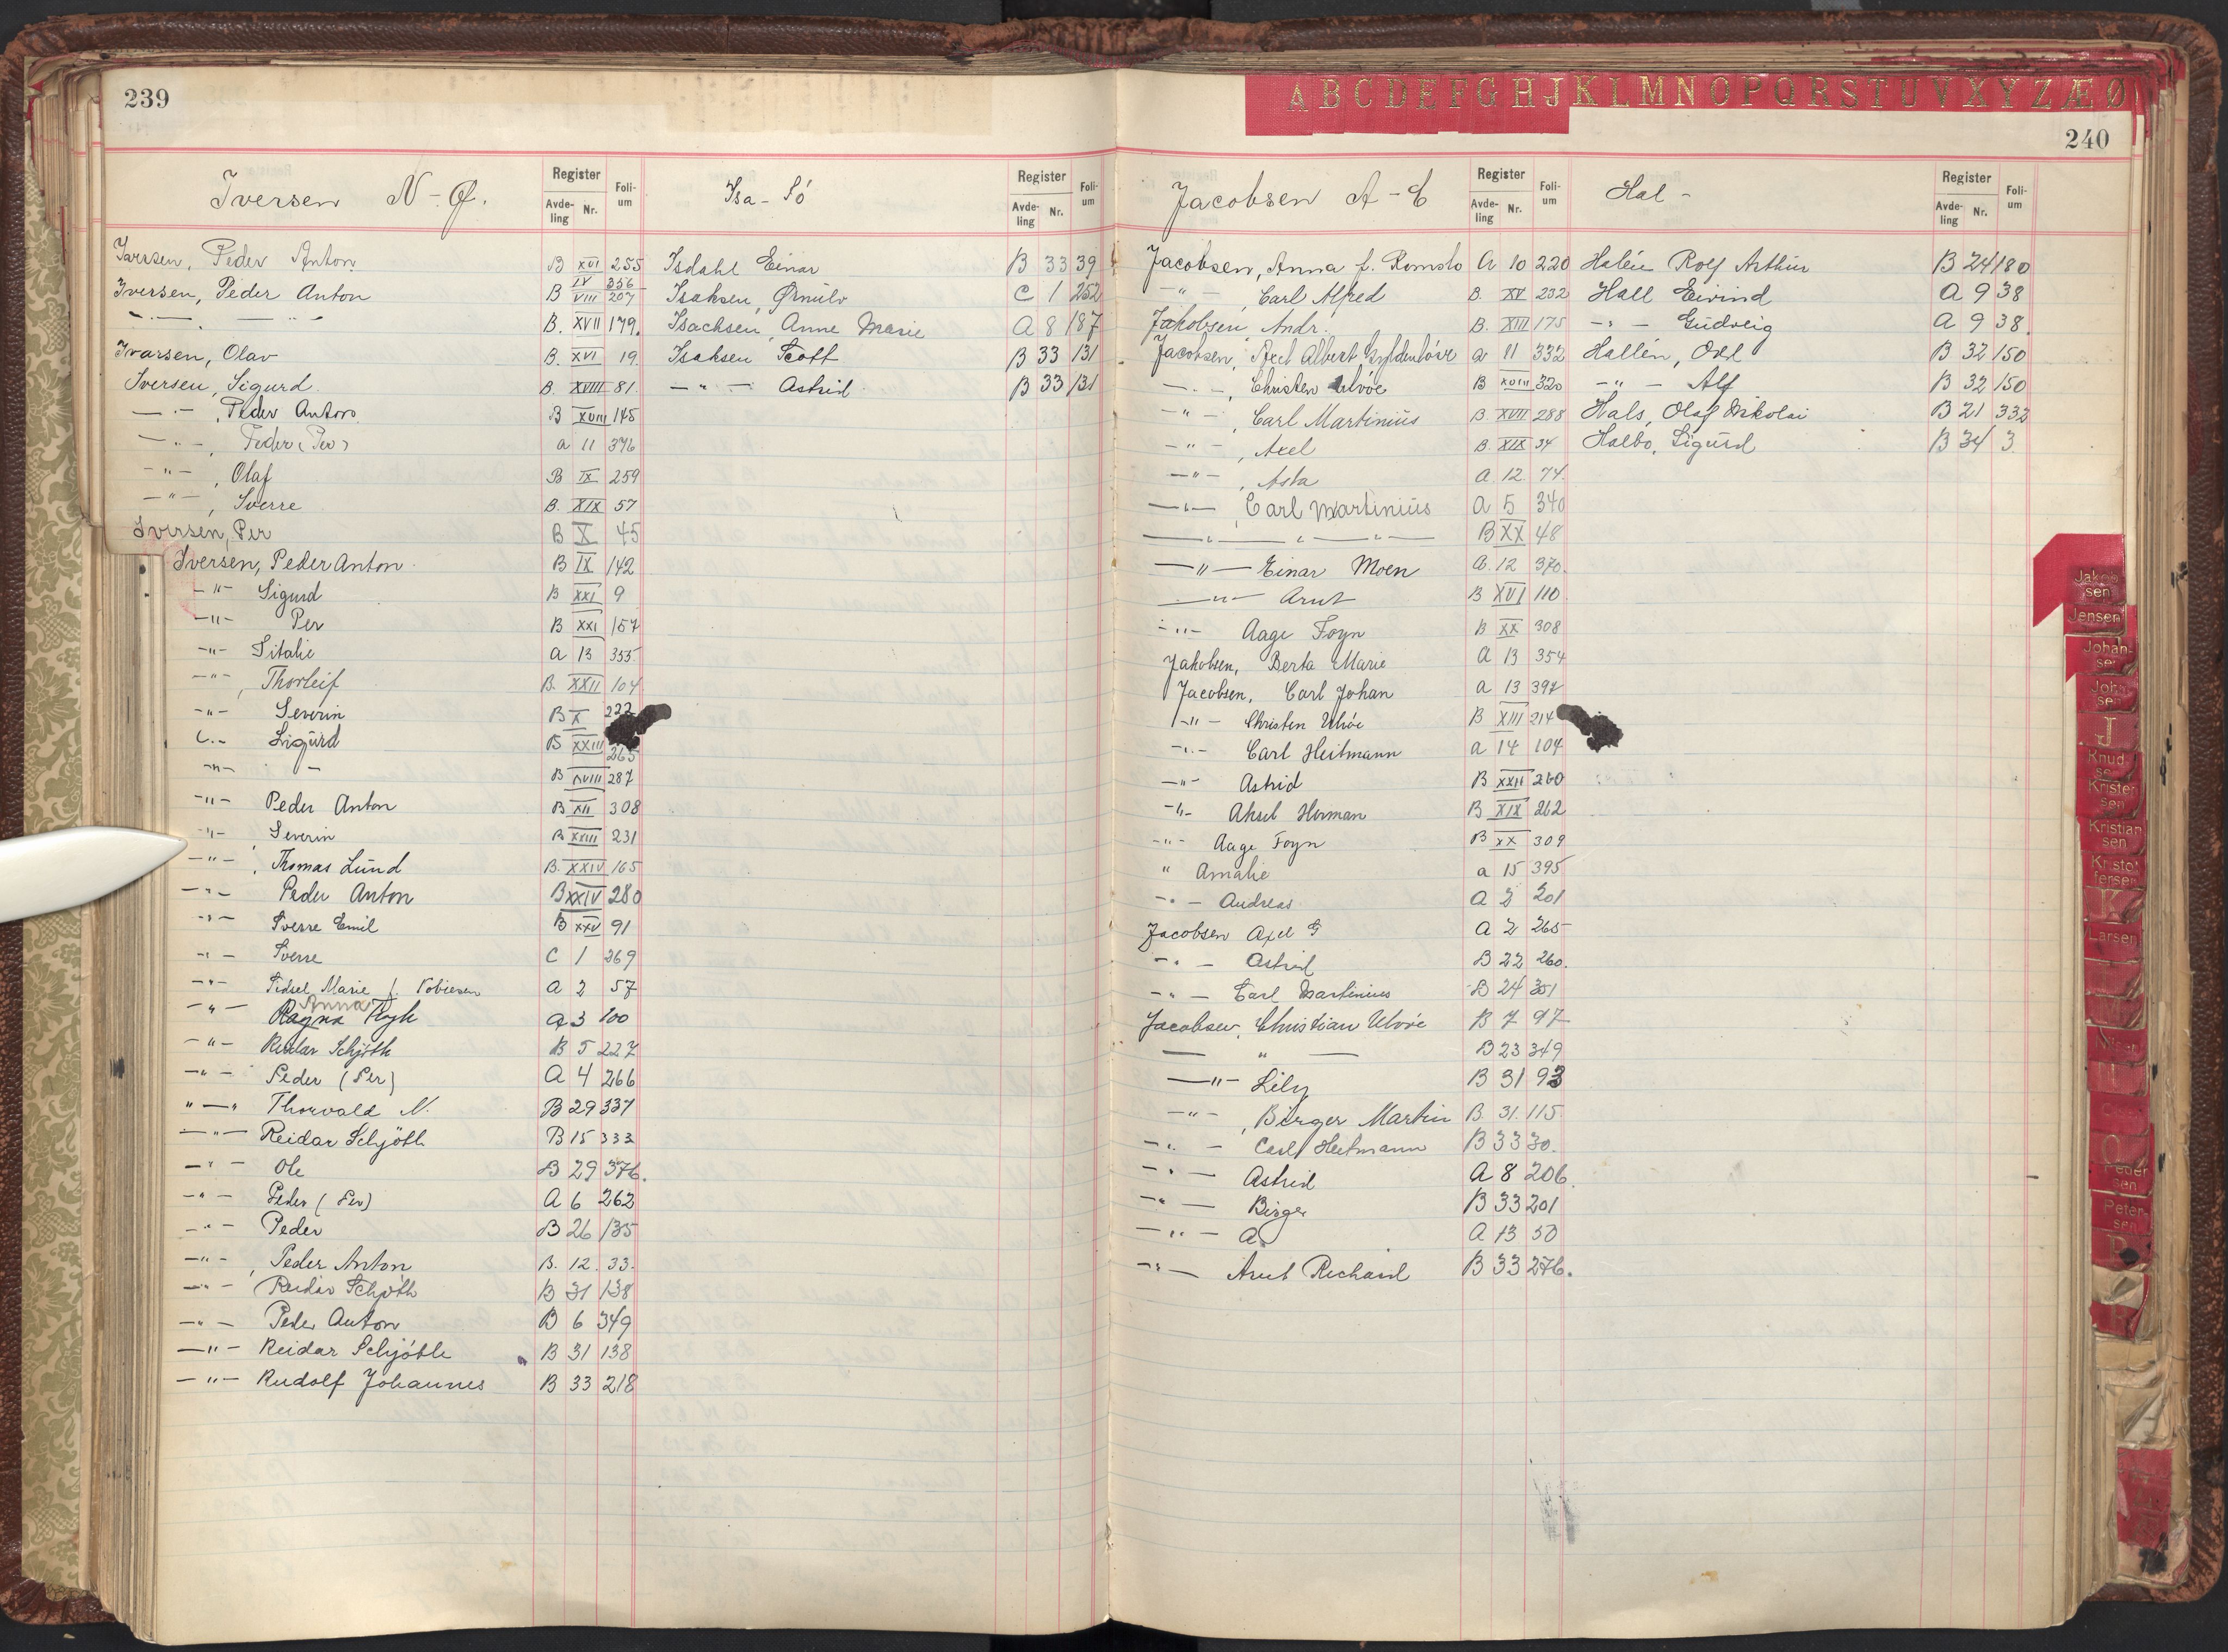 239
Iversen N-Ø.
Register
Avde-ling Nr.
Foli-um
Iversen, Peder Anton B XVI 255
IV 356
Iversen, Peder Anton B VIII 207
—"— — " — B. XVII 179.
Ivarsen, Olav B. XVI 19
Iversen, Sigurd. B. XVIII 81.
—"—, Peder Anton B XVIII 145
—"—, Peder (Per) a 11 376
—"—, Olaf B IX 259
—"—, Sverre B. XIX 57
Iversen, Per B X 45
Iversen, Peder Anton B IX 142
—"— Sigurd B XXI 9
—"— Per B XXI 157
—"— Sitalie a 13 355
—"—, Thorleif B. XXII 104
—"— Severin B X 222
—"— Sigurd B XXIII 265
—"— — B XVIII 287
—"— Peder Anton B XII 308
—"—, Severin B XXIII 231
—"—, Thomas Lund B. XXIV 165
—"— Peder Anton B XXIV 280
—"— Sverre Emil B XXV 91
—"— Sverre C 1 269
—"— Sidsel Marie f. Tobiesen A 2 57
Anna
—"— Ragna Ryk a 3 100
—"— Reidar Schjöth B 5 227
—"— Peder (Per) A 4 266
"—" Thorvald N. B 29 337
—"— Reidar Schjöth B 15 333
—"— Ole B 29 376.
—"— Peder (Per) A 6 262
—"— Peder B 26 135
—"—, Peder Anton B. 12. 33.
—"— Reidar Schjöth B 31 138
—"— Peder Anton B 6 349
—"— Reidar Schjöth B 31 138
—"— Rudolf Johannes B 33 218
Isa - Só
Register
Avde-ling Nr.
Foli-um
Isdahl Einar B 33 39
Isaksen, Ørnulv C 1 252
Isachsen Anne Marie A 8 187
Isaksen Scott B 33 131
—"— Astrid B 33 131
A B C D E F G H J K L M N O P Q R S T U V X Y Z Æ Ø
240
Jacobsen A-C
Register
Avde-ling Nr.
Foli-um
Jacobsen, Anna f. Romslo A 10 220
—"—, Carl Alfred B. XV 232
Jakobsen Andr. B. XIII 175
Jacobsen, Axel Albert Gyldenløve a 11 332
—"—, Christen Ulvöe B XVIII 320
—"—, Carl Martinius B. XVIII 288
—"—, Axel B. XIX 34
—"—, Asta a 12. 74.
—"—, Carl Martinius a 5 340
—"— — " — " — B XX 48
—"— Einar Moen a. 12 370.
—"— Arnt B XVI 110
—"— Aage Foyn B XX 308
Jakobsen, Berta Marie a 13 354
Jacobsen, Carl Johan a 13 397
—"— Christen Ulvöe B XIII 214
—"— Carl Heitmann a 14 104
—"— Astrid B XXII 260
—"— Aksel Herman B XIX 262
—"— Aage Foyn B XX 309
" Amalie a 15 395
—"— Andreas A 2 201
Jacobsen Axel G a 2 265
—"— Astrid B 22 260.
—"— Carl Martinius B 24 351
Jacobsen, Christian Ulvöe B 7 97
— " — B 23 349
—"— Lily B 31 93
—"—, Birger Martin B. 31. 115
—"— Carl Heitmann B 33 30.
—"— Astrid A 8 206.
—"— Birger B 33 201
—"— A. a 13 50
—"— Arnt Richard B 33 276.
Hal-
Register
Avde-ling Nr.
Foli-um
Halén Rolf Arthur B 24 180
Hall Eivind A 9 38
—"— Gudveig A 9 38.
Hallén, Odd B 32 150
—"— Alf B 32 150
Hals, Olaf Nikolai B 21 332
Halbo, Sigurd B 34 3
Jakob-sen
Jensen
Johan-sen
John-sen
J
Knud-sen
Kristen-sen
Kristian-sen
Kristof-fersen
K
Larsen
O
Peder-sen
Peter-sen
P
R